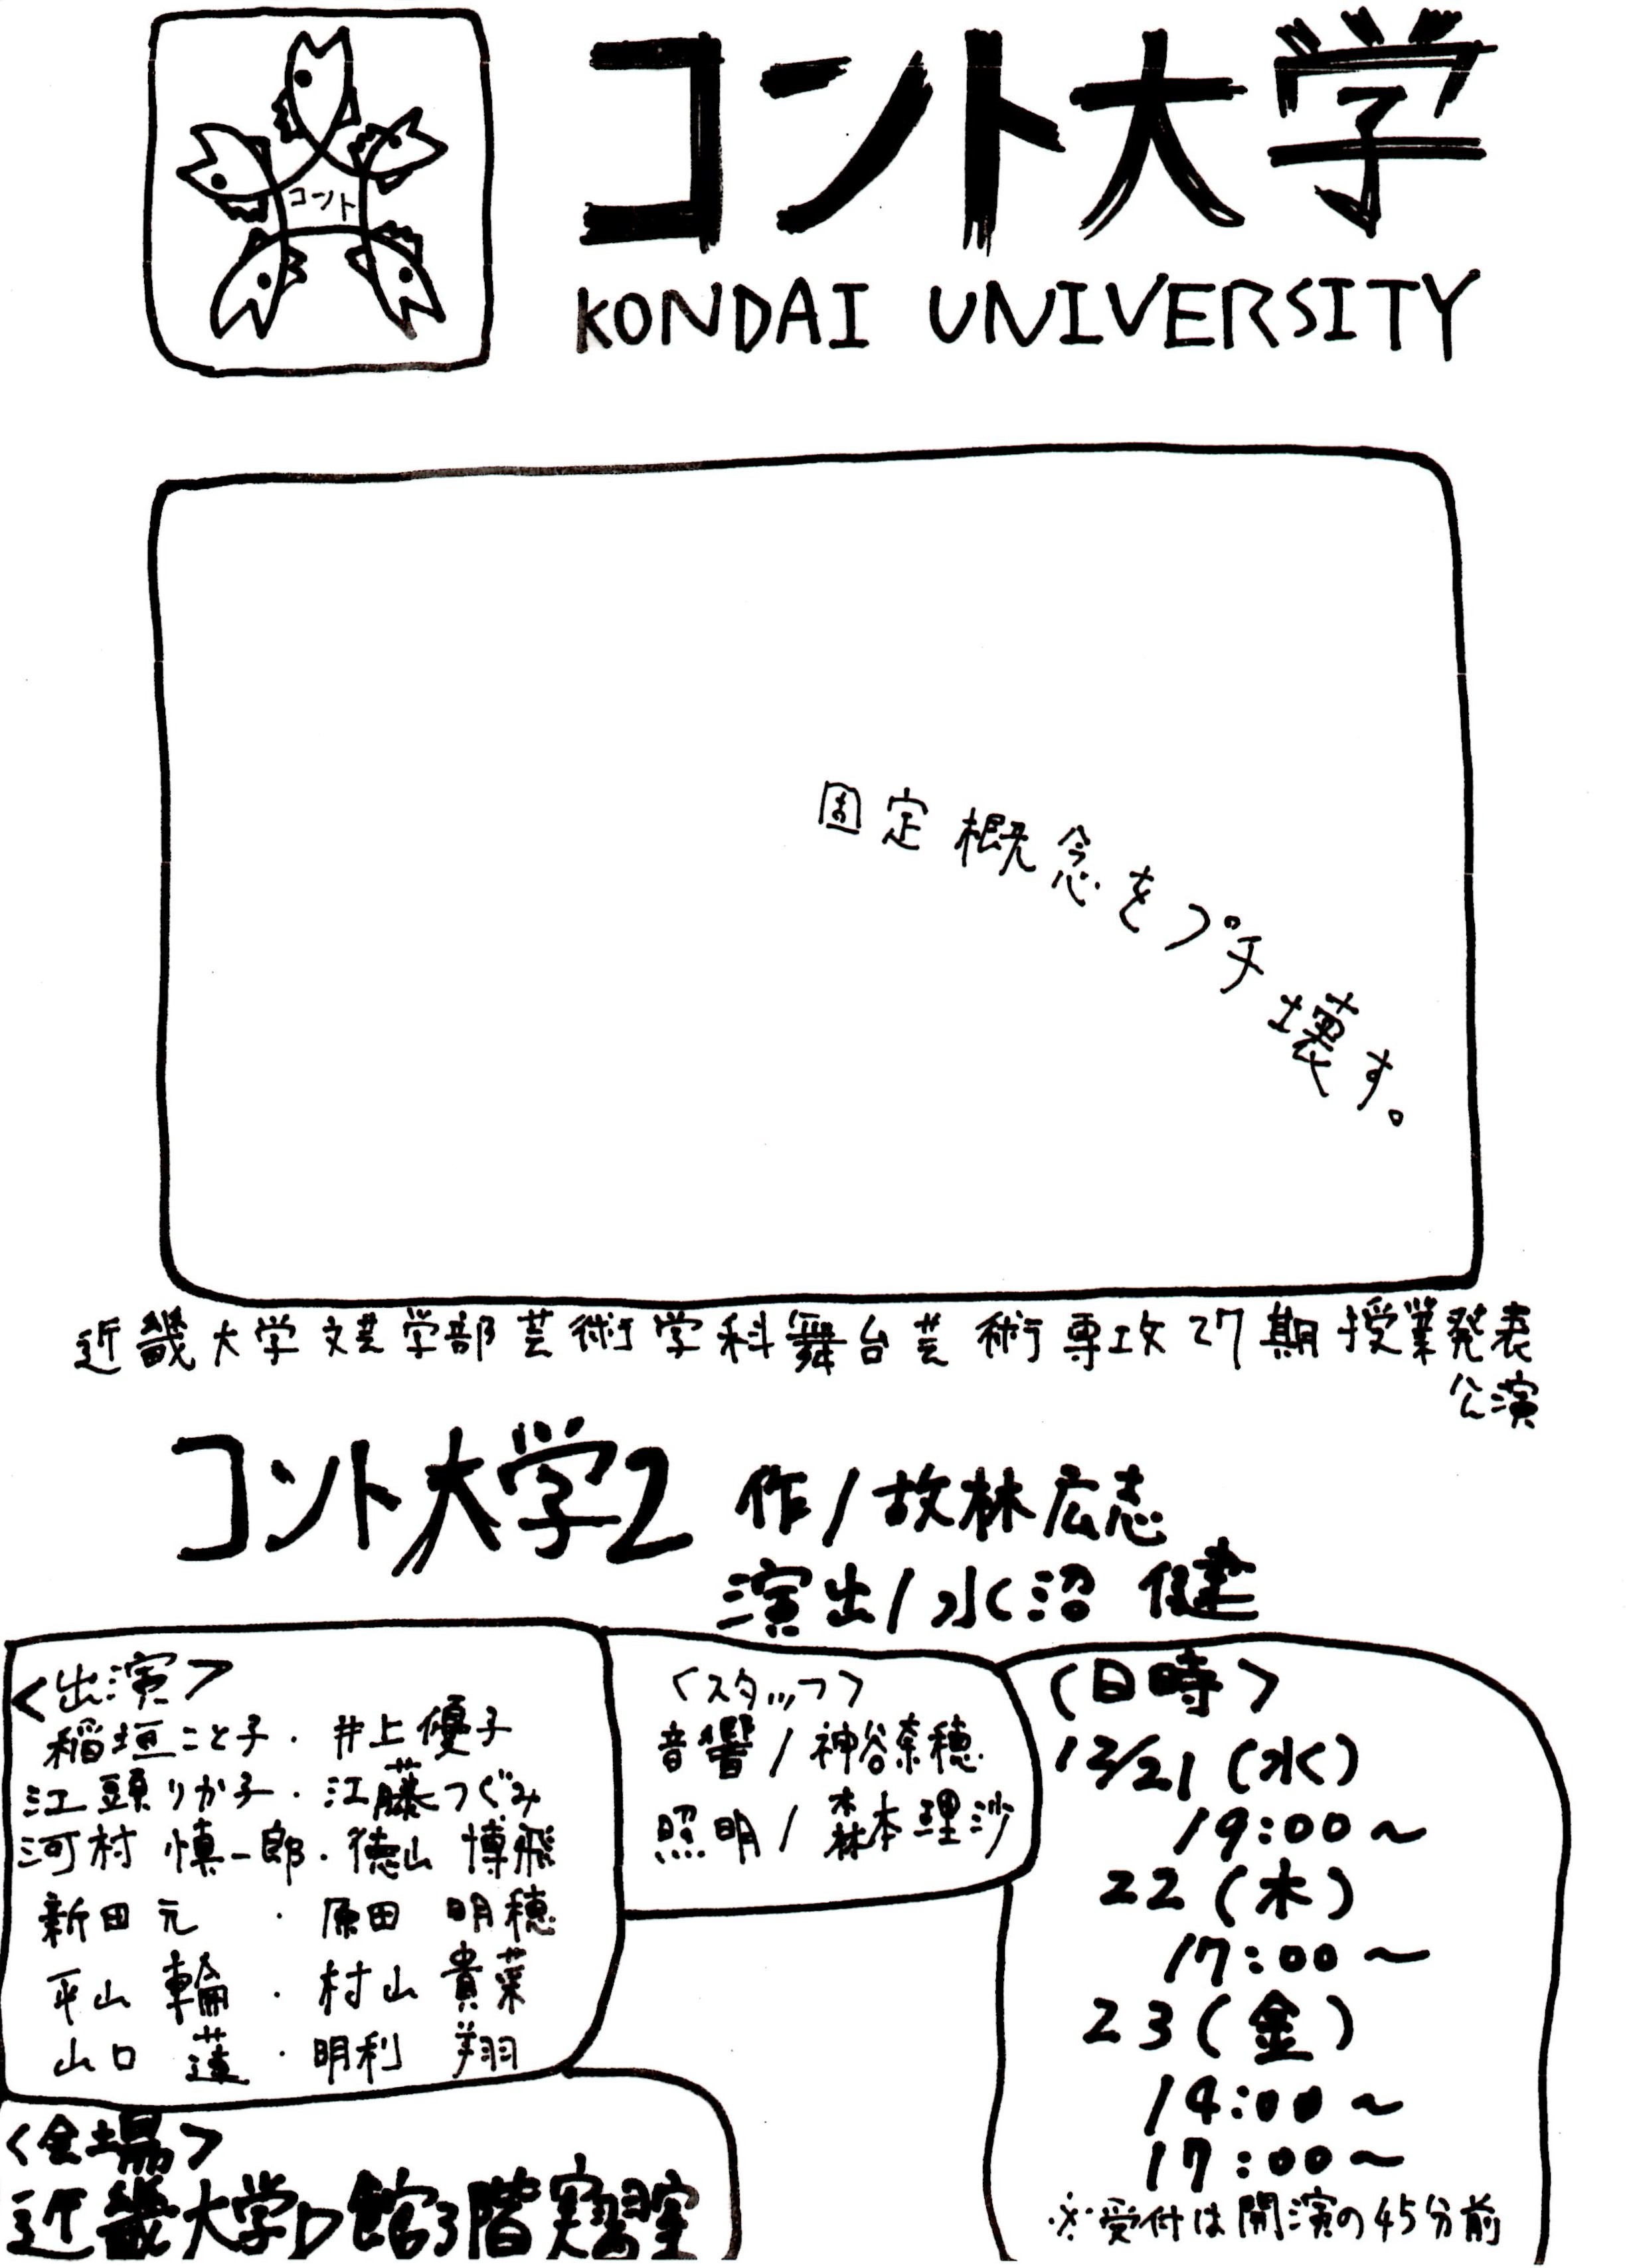 コント
コント大学
KONDAI UNIVERSITY
固定概念をプチ壊す。
近畿大学文芸学部芸術学科舞台芸術専攻27期授業発表
公演
コント大学2
作/故林広志
演出/水沼 健
<出演>
稲垣こと子・井上優子
江頭りか子・江藤つぐみ
河村 慎一郎・徳山 博飛
新田 元 ・ 原田 明穂
平山 輪 ・ 村山 貴菜
山口 蓮 ・ 明利 翔
<スタッフ>
音響/神谷奈穂
照明/森本理沙
<日時>
12/21(水)
19:00~
22(木)
17:00~
23(金)
14:00~
17:00~
※受付は開演の45分前
<会場>
近畿大学D館3階実習室